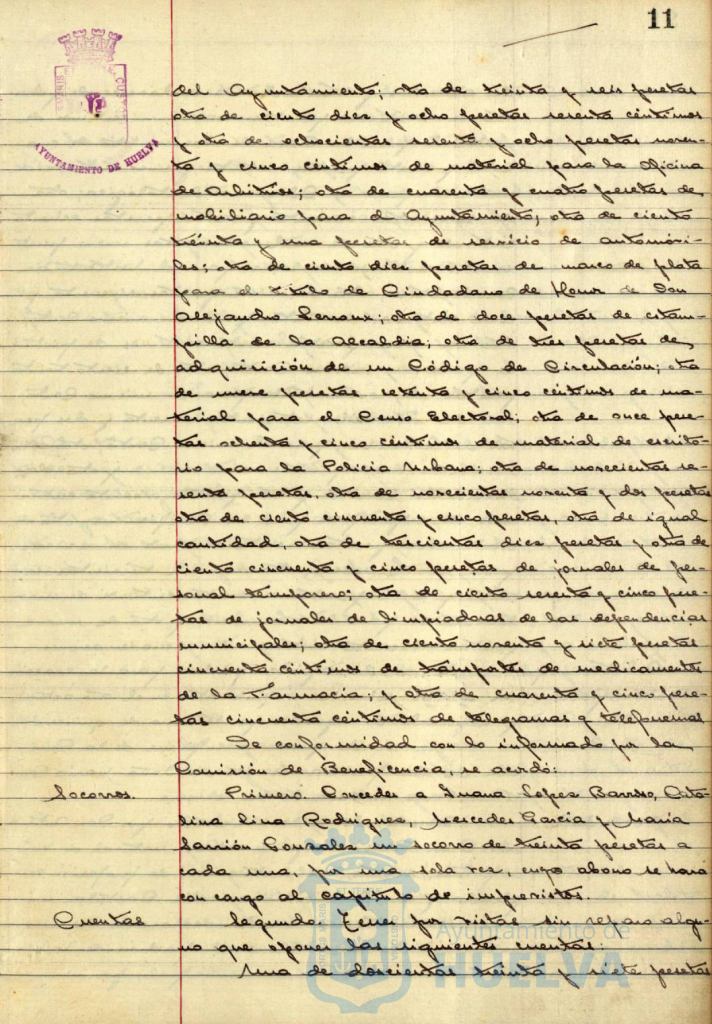 11
AYUNTAMIENTO DE HUELVA
del Ayuntamiento; otra de treinta y seis pesetas
otra de ciento diez y ocho pesetas sesenta céntimos
y otra de ochocientas sesenta y ocho pesetas noven-
ta y cinco céntimos de material para la Oficina
de Arbitrios; otra de cuarenta y cuatro pesetas de
mobiliario para el Ayuntamiento; otra de ciento
treinta y una pesetas de servicio de automóvi-
les; otra de ciento diez pesetas de marco de plata
para el Título de Ciudadano de Honor de Don
Alejandro Lerroux; otra de doce pesetas de estam-
pilla de la Alcaldía; otra de tres pesetas de
adquisición de un Código de Circulación; otra
de nueve pesetas setenta y cinco céntimos de ma-
terial para el Censo Electoral; otra de once pese-
tas ochenta y cinco céntimos de material de escrito-
rio para la Policía Urbana; otra de novecientas se-
senta pesetas, otra de novecientas noventa y dos pesetas
otra de ciento cincuenta y cinco pesetas, otra de igual
cantidad, otra de trescientas diez pesetas y otra de
ciento cincuenta y cinco pesetas de jornales de per-
sonal temporero; otra de ciento sesenta y cinco pese-
tas de jornales de limpiadoras de las dependencias
municipales; otra de ciento noventa y siete pesetas
cincuenta céntimos de transportes de medicamentos
de la Farmacia; y otra de cuarenta y cinco pese-
tas cincuenta céntimos de telegramas y telefonemas
De conformidad con lo informado por la
Comisión de Beneficencia, se acordó:
Socorros.
Primero. Conceder a Juana López Barroso, Cata-
lina Lina Rodríguez, Mercedes García y María
Sarrión González un socorro de treinta pesetas a
cada una, por una sola vez, cuyo abono se hará
con cargo al capítulo de imprevistos.
Cuentas
Segundo. Tener por vistas sin reparo algu-
no que oponer las siguientes cuentas:
Una de doscientas treinta y siete pesetas
Ayuntamiento de
HUELVA